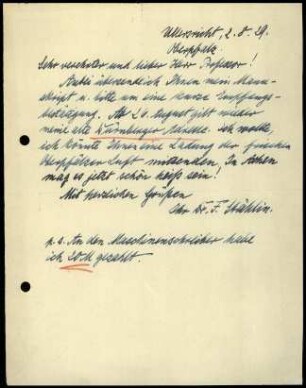 Ullersricht, 2. 8. 29.
Oberpfalz.
Sehr verehrter und lieber Herr Professor!
Anbei übersende ich Ihnen mein Manu-
skript u. bitte um eine kurze Empfangs-
bestätigung. Ab 20. August gilt wieder
meine alte Nürnberger Adresse. Ich wollte,
ich könnte Ihnen eine Ladung der frischen
Oberpfälzer Luft mitsenden. In Athen
mag es jetzt schön heiß sein!
Mit herzlichen Grüßen
Ihr Dr. F. Stählin.
p.s. An den Maschinenschreiber habe
ich 20 M gezahlt.